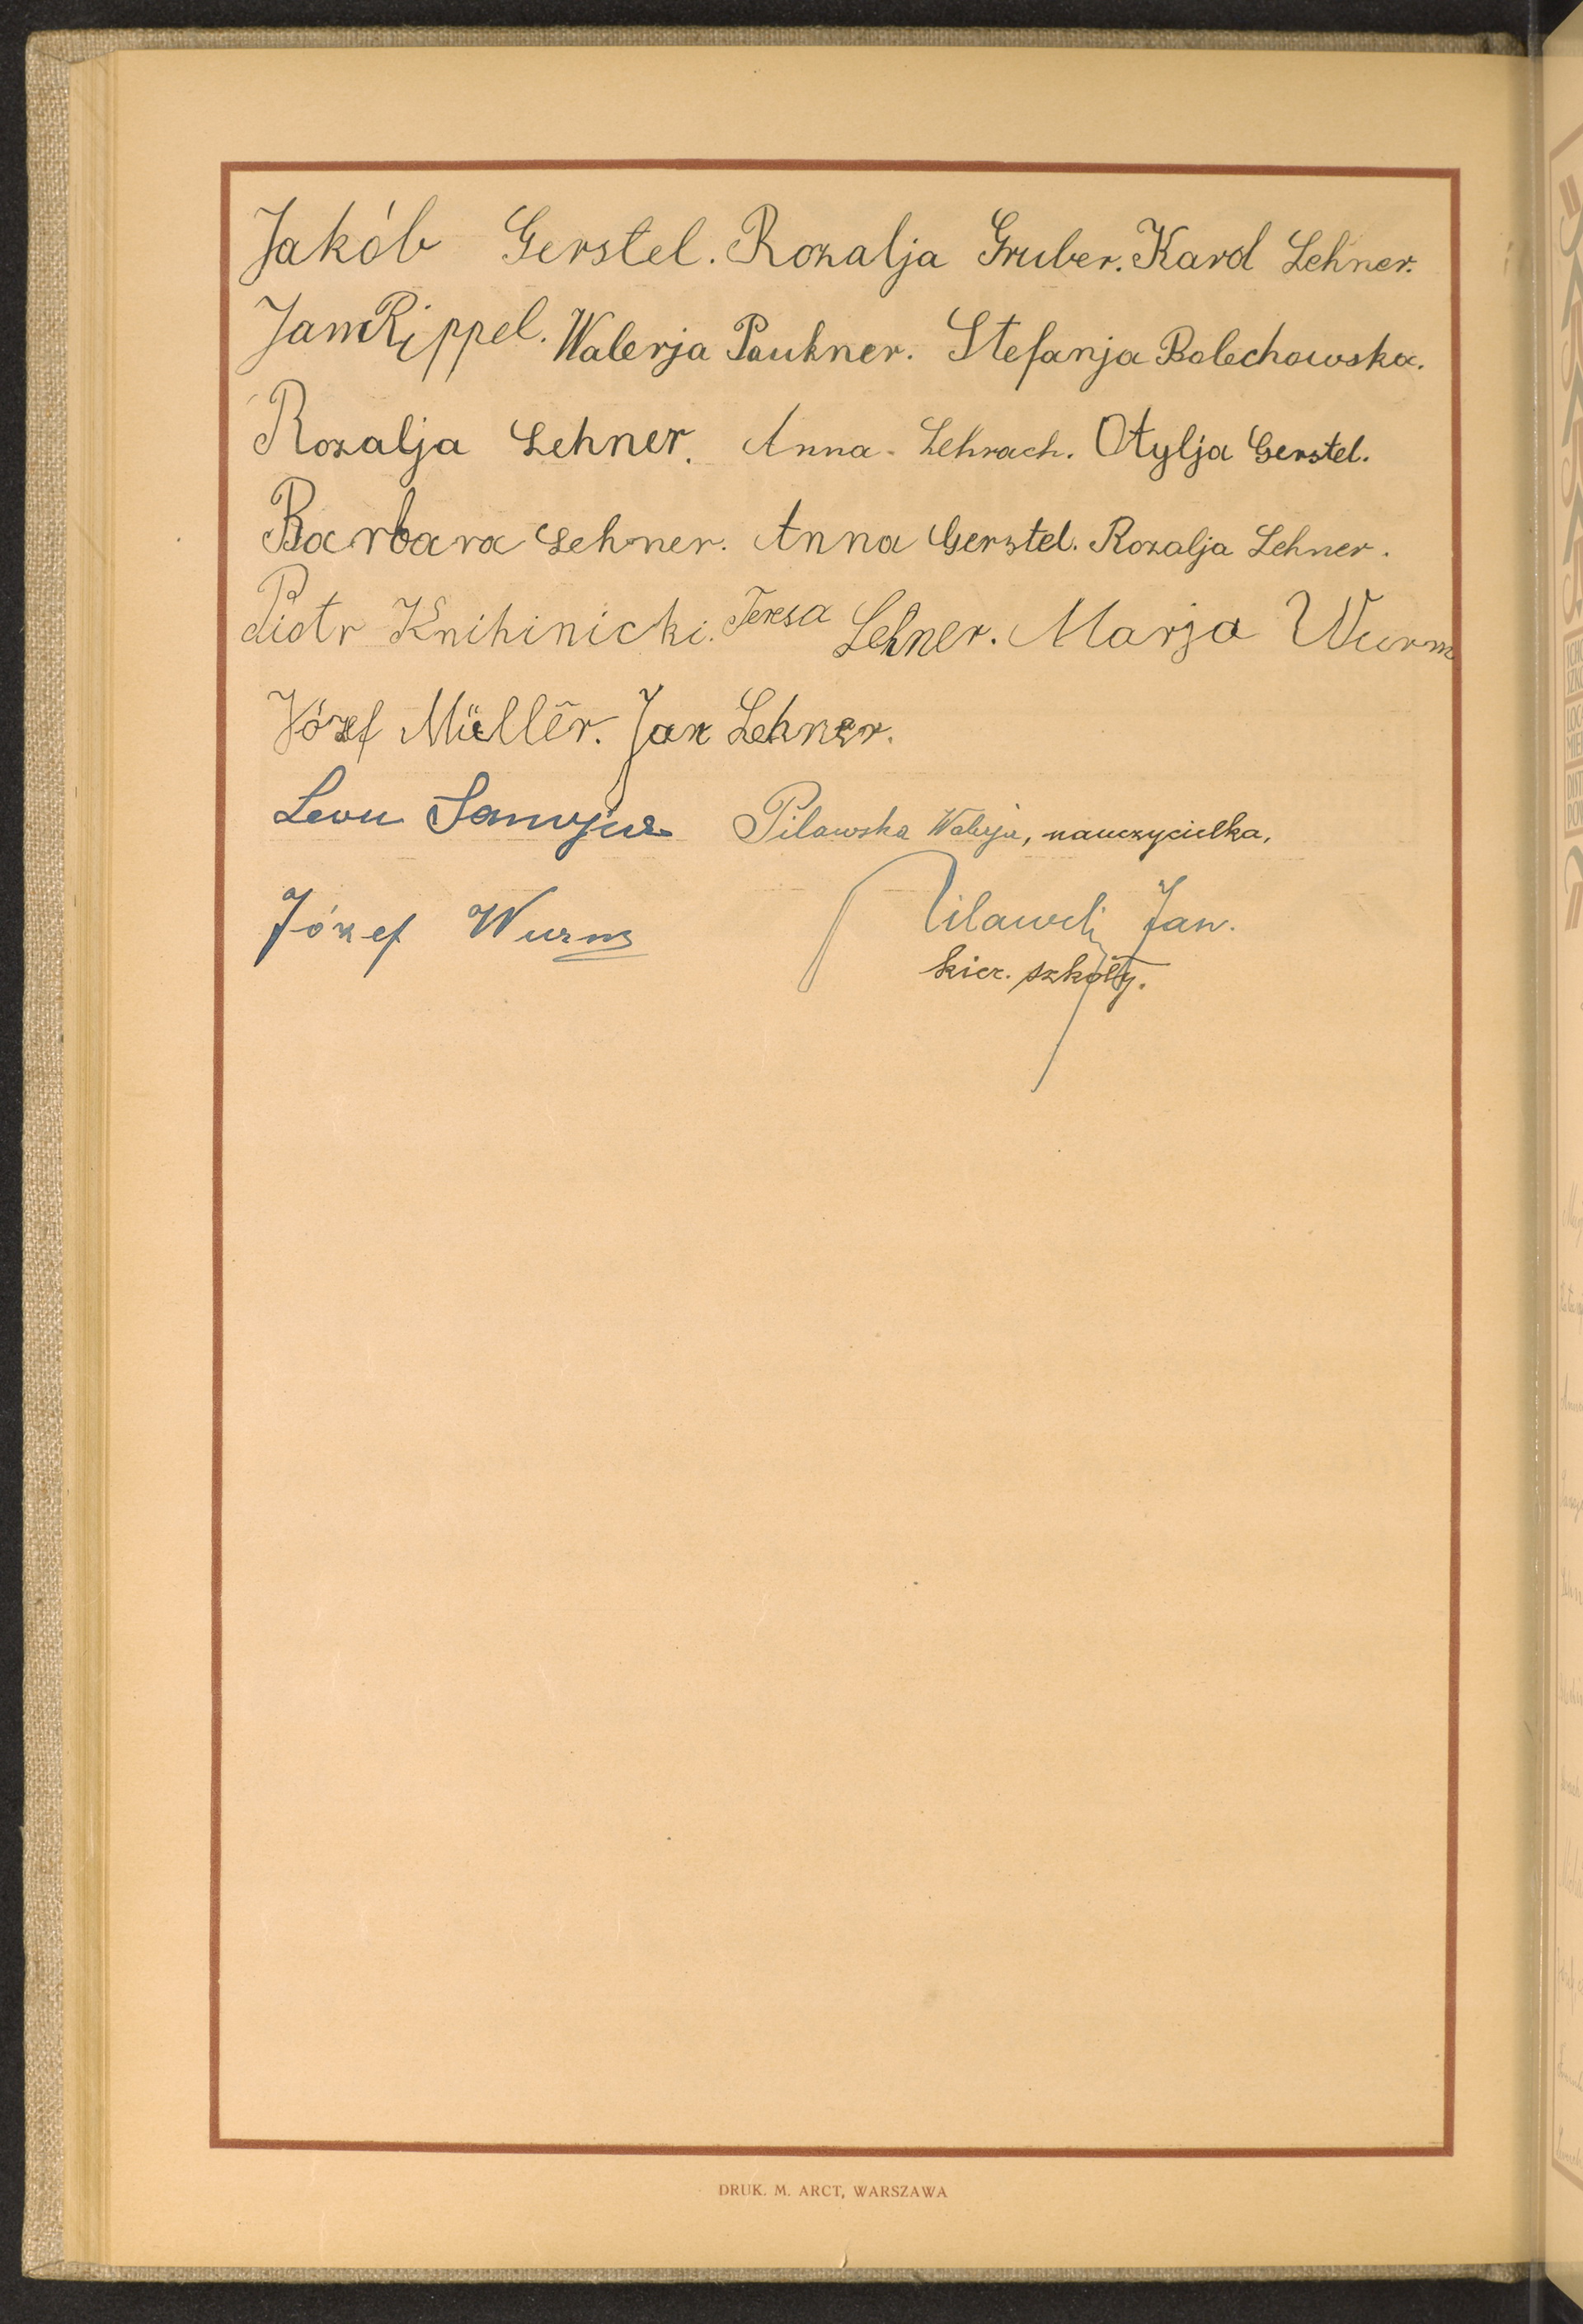 Jakób Gerstel. Rozalja Gruber. Karol Lehner.
Jan Rippel. Walerja Paukner. Stefanja Bolechowska.
Rozalja Lehner. Anna Lehrach. Otylja Gerstel.
Barbara Lehner. Anna Gerstel. Rozalja Lehner.
Piotr Knihinicki. Teresa Lehner. Marja Wurm
Józef Müller. Jan Lehner.
Pilawska Walerja, nauczycielka,
Józef Wurm
Pilawski Jan.
kier. szkoły.
DRUK. M. ARCT, WARSZAWA